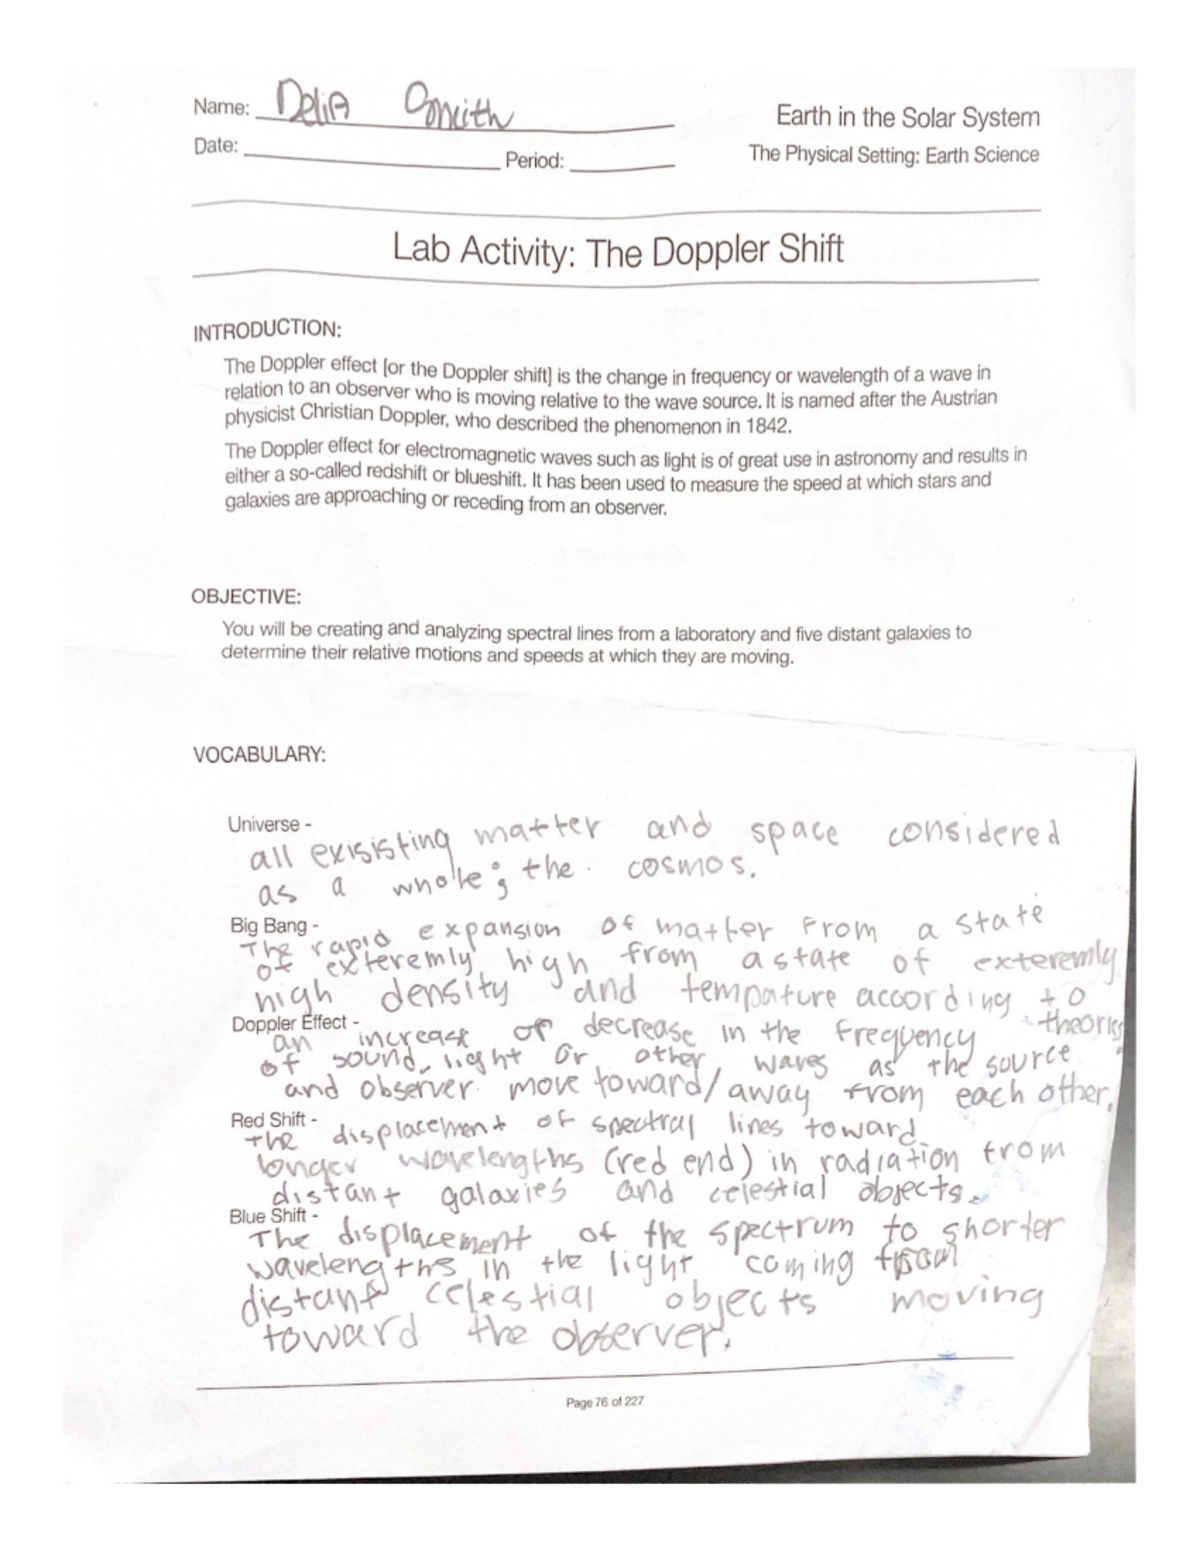 Name: Delia Smith
Earth in the Solar System
Date: Period:
The Physical Setting: Earth Science
Lab Activity: The Doppler Shift
INTRODUCTION:
The Doppler effect [or the Doppler shift] is the change in frequency or wavelength of a wave in
relation to an observer who is moving relative to the wave source. It is named after the Austrian
physicist Christian Doppler, who described the phenomenon in 1842.
The Doppler effect for electromagnetic waves such as light is of great use in astronomy and results in
either a so-called redshift or blueshift. It has been used to measure the speed at which stars and
galaxies are approaching or receding from an observer.
OBJECTIVE:
You will be creating and analyzing spectral lines from a laboratory and five distant galaxies to
determine their relative motions and speeds at which they are moving.
VOCABULARY:
Universe -
all exisisting matter and space considered
as a whole; the cosmos.
Big Bang -
The rapid expansion of matter from a state
of exteremly high from a state of exteremly
high density and tempature according to
theories
Doppler Effect -
an increase or decrease in the frequency
of sound, light or other waves as the source
and observer move toward/away from each other.
Red Shift -
the displacement of spectral lines toward
longer wavelengths (red end) in radiation from
distant galaxies and celestial objects.
Blue Shift -
The displacement of the spectrum to shorter
wavelengths in the light coming from
distant celestial objects moving
toward the observer.
Page 76 of 227